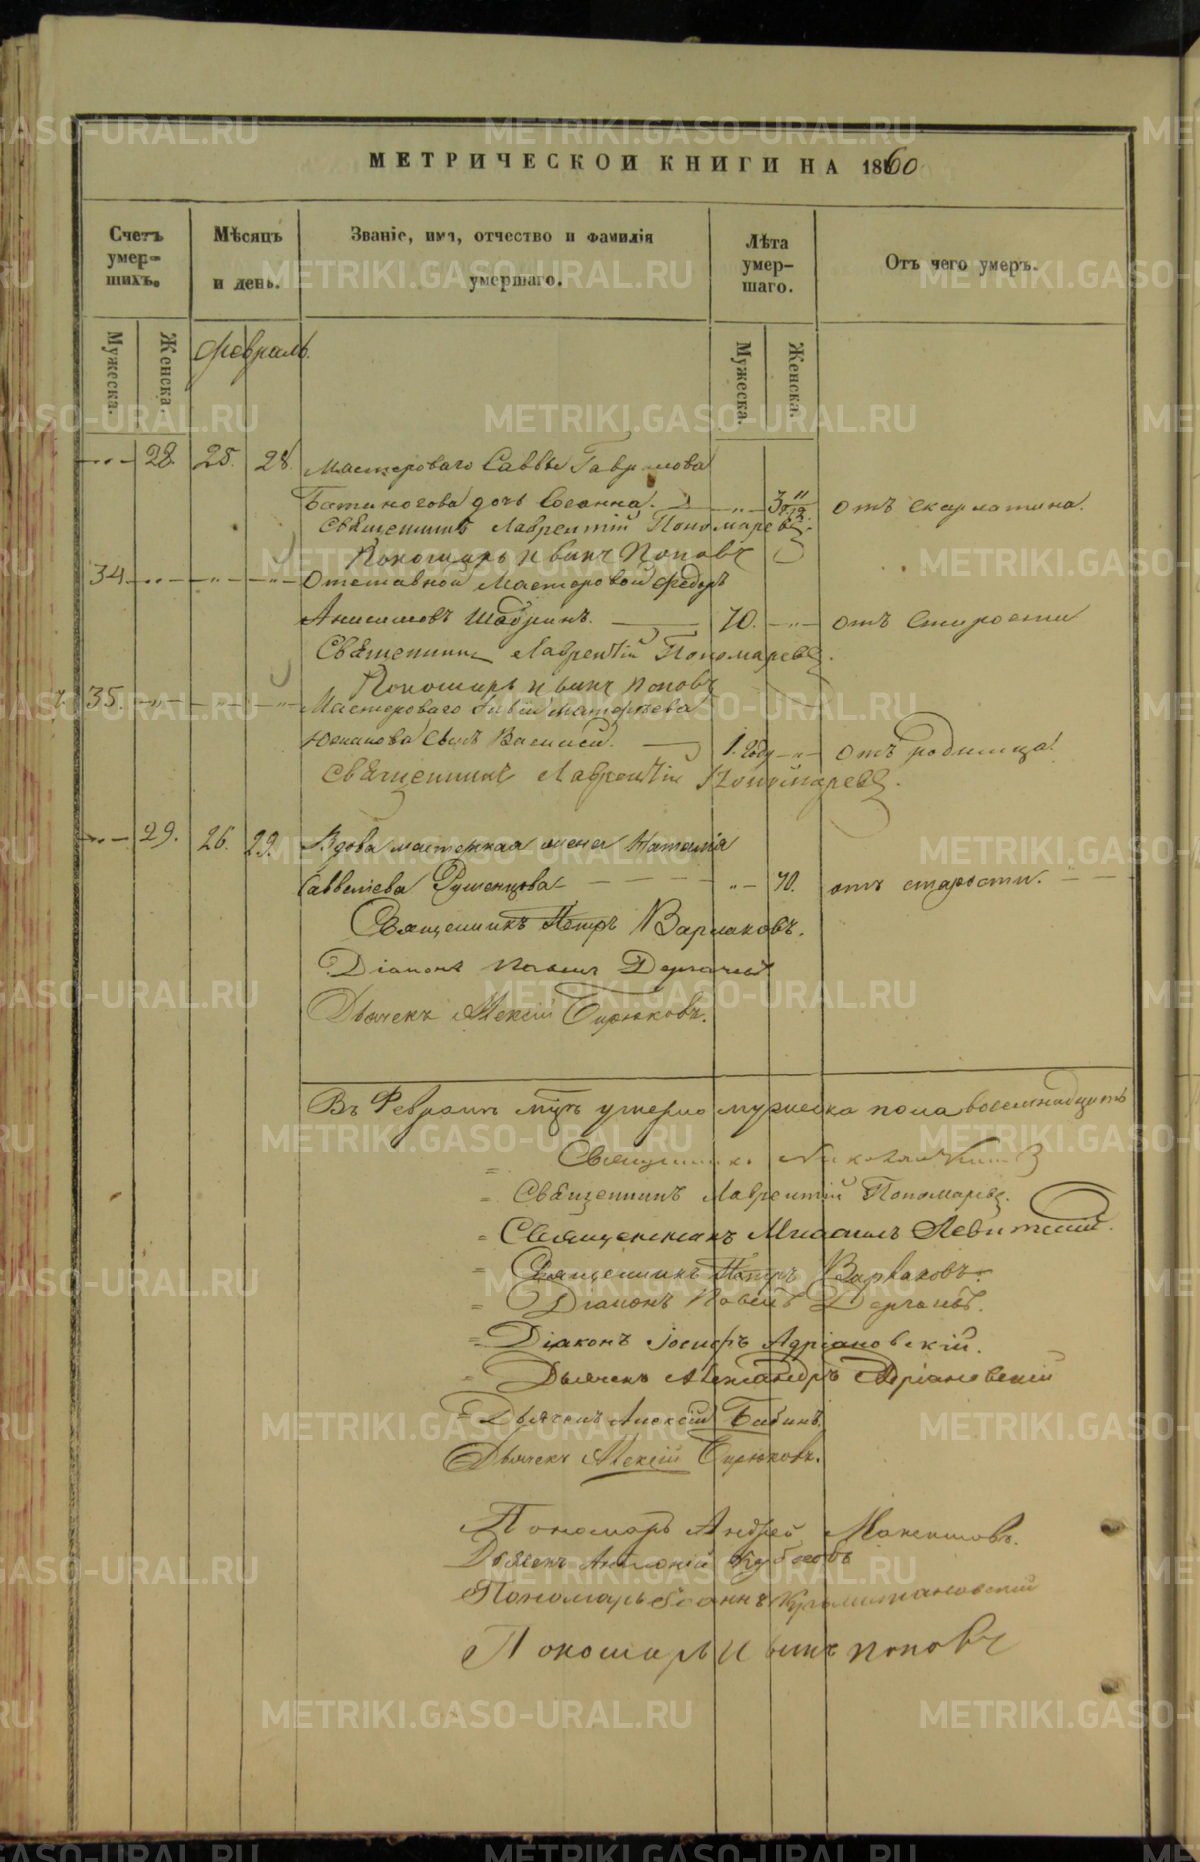 МЕТРИЧЕСКОЙ КНИГИ НА 1860
Счетъ умершихъ.
Мѣсяцъ и день.
Званіе, имя, отчество и фамилія умершаго.
Лѣта умершаго.
Отъ чего умеръ.
Мужеска.
Женска.
Февраль.
Мужеска.
Женска.
28. 25. 28. Мастероваго Саввы Гаврилова
дочь 3 отъ скарлатина.
Священникъ Лаврентій Пономаревъ.
Пономарь Иванъ Поповъ
34 Отставной Мастеровой Федоръ
Анисимовъ Шабринъ. 70. отъ Старости
Священникъ Лаврентій Пономаревъ.
Пономарь Иванъ Поповъ
35. Мастероваго
сынъ Василій. 1. году отъ родимца.
Священникъ Лаврентій Пономаревъ.
29. 26. 29. Вдова мастерская жена Наталія
Савельева Румянцова 70. отъ старости.
Священникъ Петръ Варлаковъ.
Діаконъ Павелъ Дергачевъ
Дьячекъ Алексій Бирюковъ.
Въ Февралѣ мцѣ умерло мужеска пола восемнадцать
Священникъ
Священникъ Лаврентій Пономаревъ.
Священникъ Михаилъ Левитскій.
Священникъ Петръ Варлаковъ.
Діаконъ Павелъ Дергачевъ.
Діаконъ Іосифъ Адріановскій.
Дьячекъ Александръ Адріановскій
Дьячекъ Алексій Бабинъ.
Дьячекъ Алексій Бирюковъ.
Пономарь Андрей Максимовъ.
Дьячекъ Антоній
Пономарь Іоаннъ
Пономарь Иванъ Поповъ
METRIKI.GASO-URAL.RU